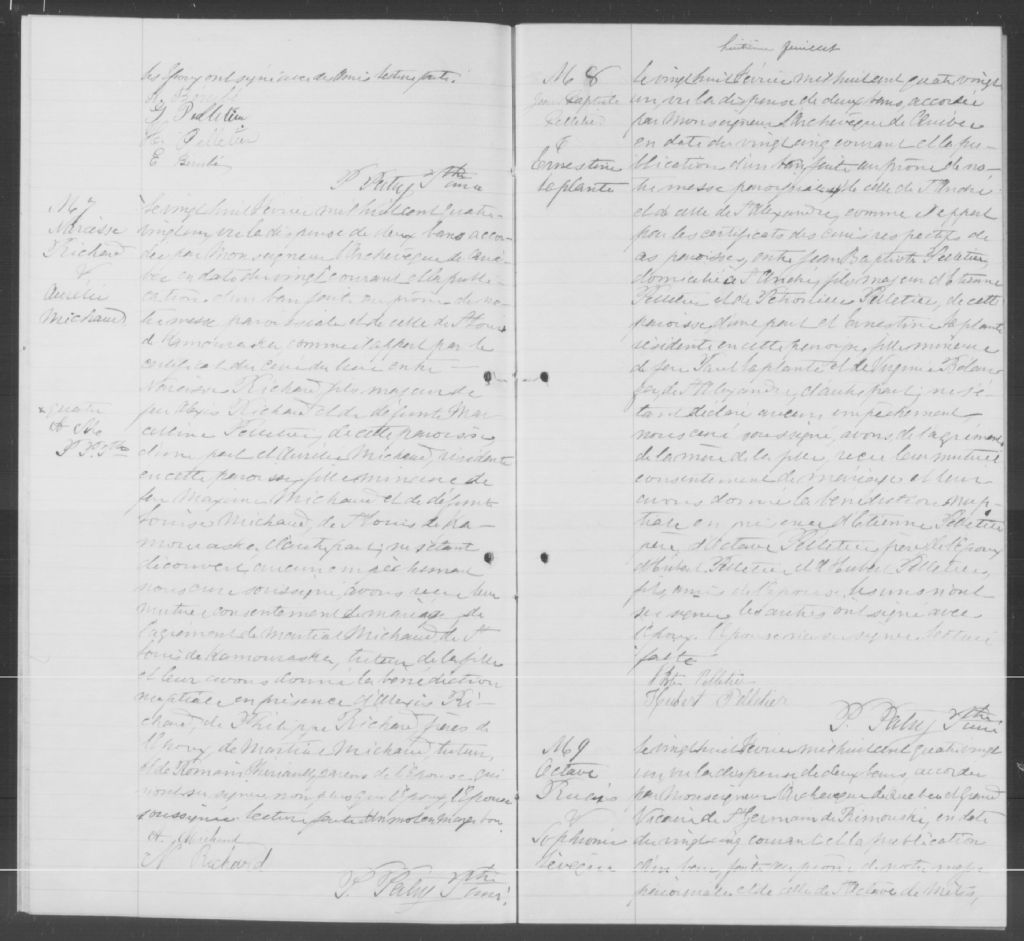 les époux ont signé avec des amis lecture faite.
G Pelletier
H. Pelletier
E
P. Patry Ptre curé
M 7
Narcisse
Richard
&
Aurélie
Michaud
Le vingt huit Février mil huit cent quatre-
vingt un, vu la dispense de deux bans accor-
dée par Monseigneur l'Archevêque de Qué-
bec en date du vingt courant et la publi-
cation d'un ban faite au prône de no-
tre messe paroissiale et de celle de St Louis
de Kamouraska, comme il appert par le
certificat du curé du lieu entre
Narcisse Richard, fils majeur de
feu Alexis Richard et de défunte Mar-
celline Pelletier, de cette paroisse
d'une part et Aurélie Michaud, résidante
en cette paroisse, fille mineure de
feu Maxime Michaud et de défunte
Louise Michaud, de St Louis de Ka-
mouraska, d'autre part; ne s'étant
découvert aucun empêchement
nous curé soussigné, avons reçu leur
mutuel consentement de mariage, de
l'agrément de Martial Michaud, de St
Louis de Kamouraska, tuteur de la fille
et leur avons donné la bénédiction
nuptiale en présence d'Alexis Ri-
chard, de Philippe Richard, frères de
l'époux, de Martial Michaud, tuteur,
et de Romain Theriault, de l'épouse qui
n'ont su signer non plus que l'époux, l'épouse
soussignée lecture faite un mot en marge bon.
A. Michaud
N. Richard
P. Patry Ptre curé
x quatre
P. P. Ptre
huitième feuillet
M 8
Jean Baptiste
Pelletier
&
Ernestine
Laplante
Le vingt huit Février mil huit cent quatre vingt
un, vu la dispense de deux bans accordée
par Monseigneur l'Archevêque de Québec
en date du vingt cinq courant et la pu-
blication d'un ban faite au prône de no-
tre messe paroissiale, de celle de St André
et de celle de St Alexandre, comme il appert
par les certificats des curés respectifs de
ces paroisses, entre Jean Baptiste Pelletier,
domicilié à St André, fils majeur d'Etienne
Pelletier et de Pelletier, de cette
paroisse d'une part et Ernestine Laplante
résidente en cette paroisse, fille mineure
de feu Paul Laplante et de Virginie
de St Alexandre, d'autre part; ne s'é-
tant déclaré aucun empêchement
nous curé soussigné, avons, de l'agrément
de la mère de la fille, reçu leur mutuel
consentement de mariage et leur
avons donné la bénédiction nup-
tiale en présence d'Etienne Pelletier
père, d'Octave Pelletier, frère de l'époux
Pelletier et d'Hubert Pelletier,
amis de l'épouse, les uns n'ont
su signer les autres ont signé avec
l'époux. L'épouse n'a su signer lecture
faite
Pelletier
Hubert Pelletier
P. Patry Ptre curé
M 9
Octave
&
Sophronie
Levêque
Le vingt huit Février mil huit cent quatre vingt
un, vu la dispense de deux bans, accordée
par Monseigneur l'Archevêque de Québec et Grand
Vicaire de St Germain de Rimouski, en date
du vingt cinq courant et la publication
d'un ban faite au prône de notre messe
paroissiale et de celle de St Octave de Métis,